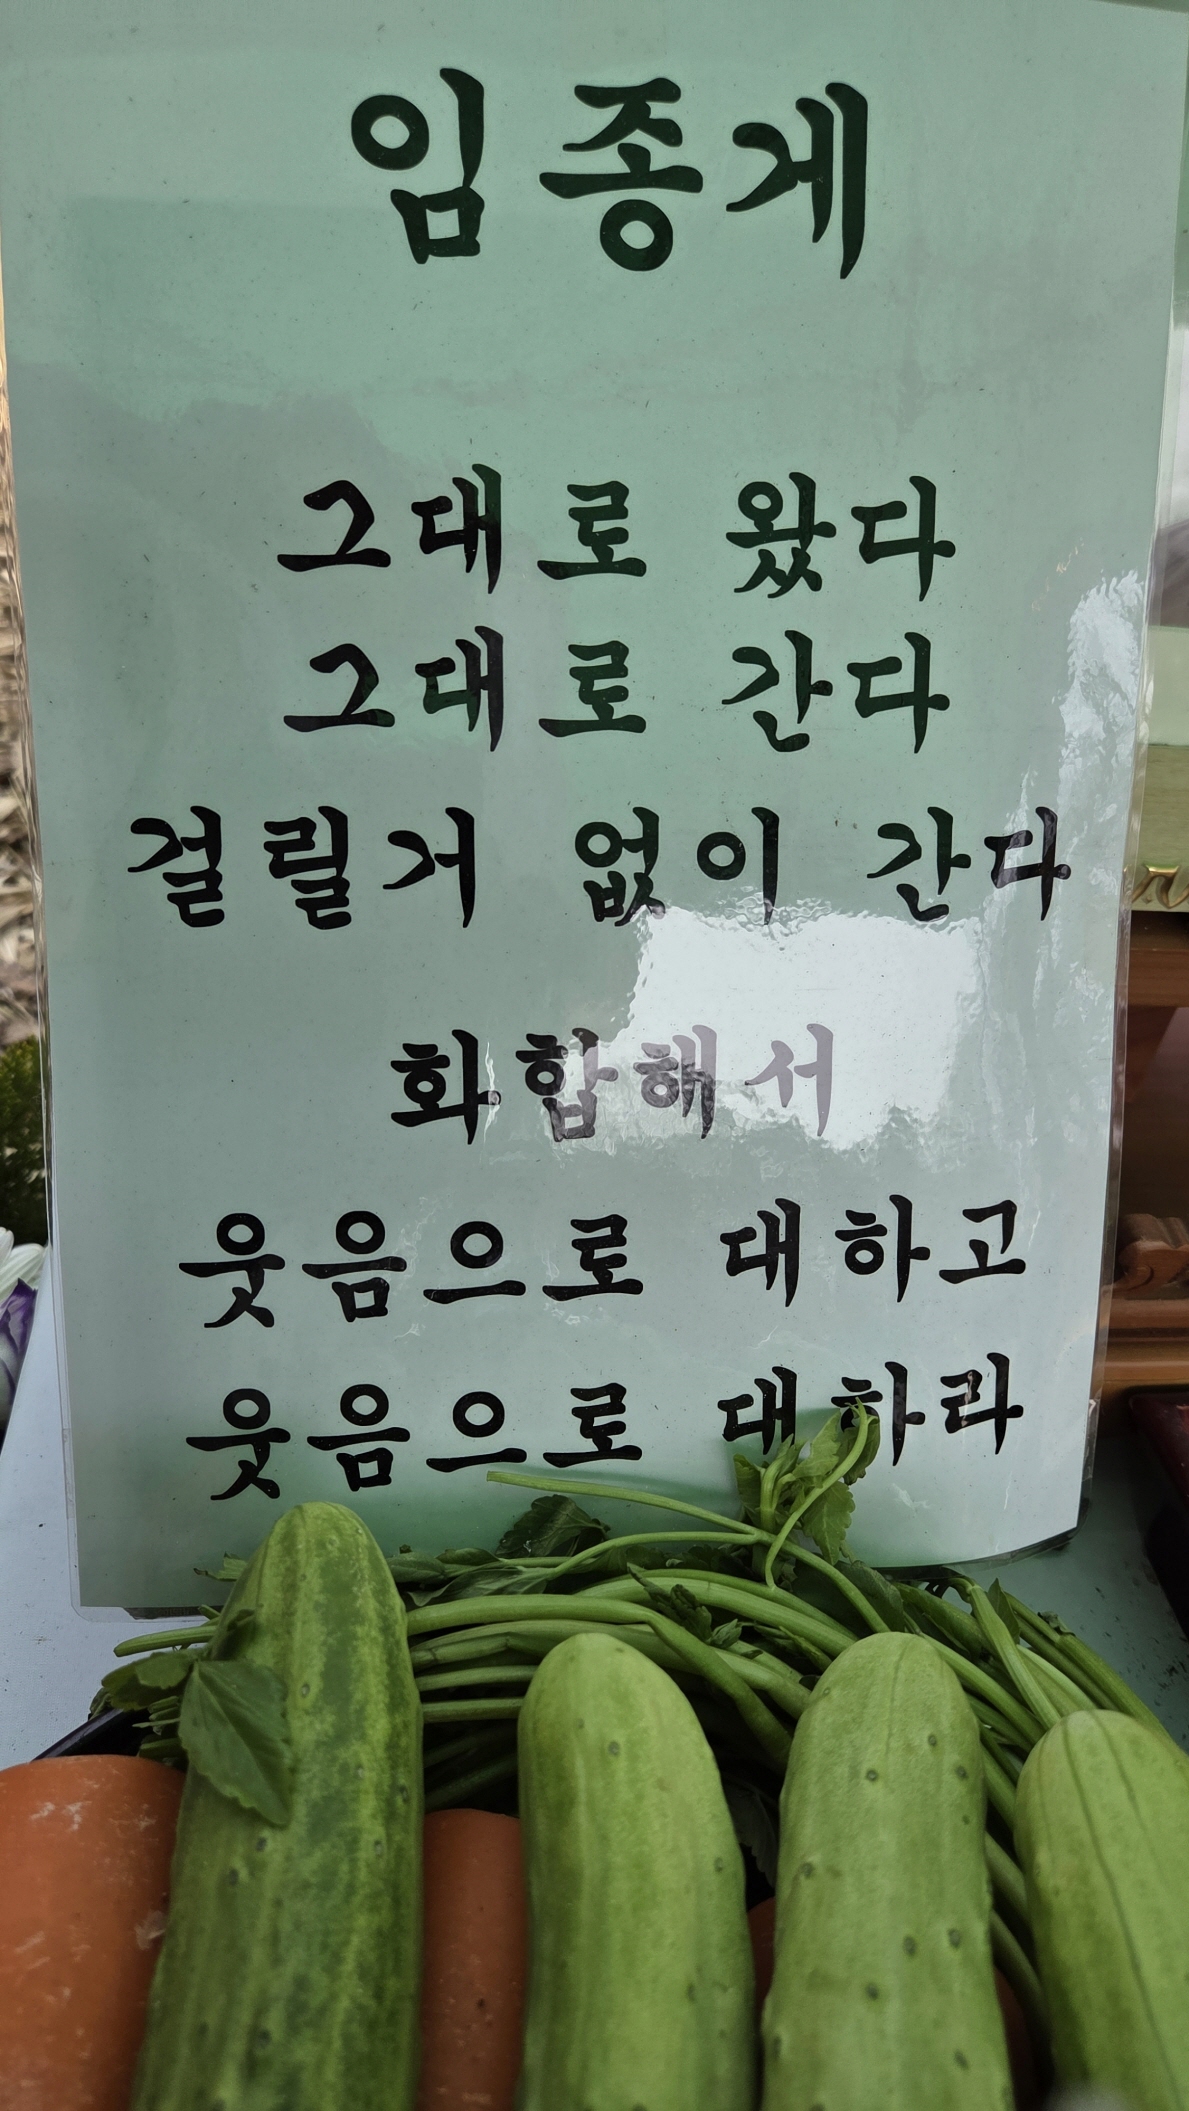 임종게
그대로 왔다
그대로 간다
걸릴거 없이 간다
화합해서
웃음으로 대하고
웃음으로 대하라